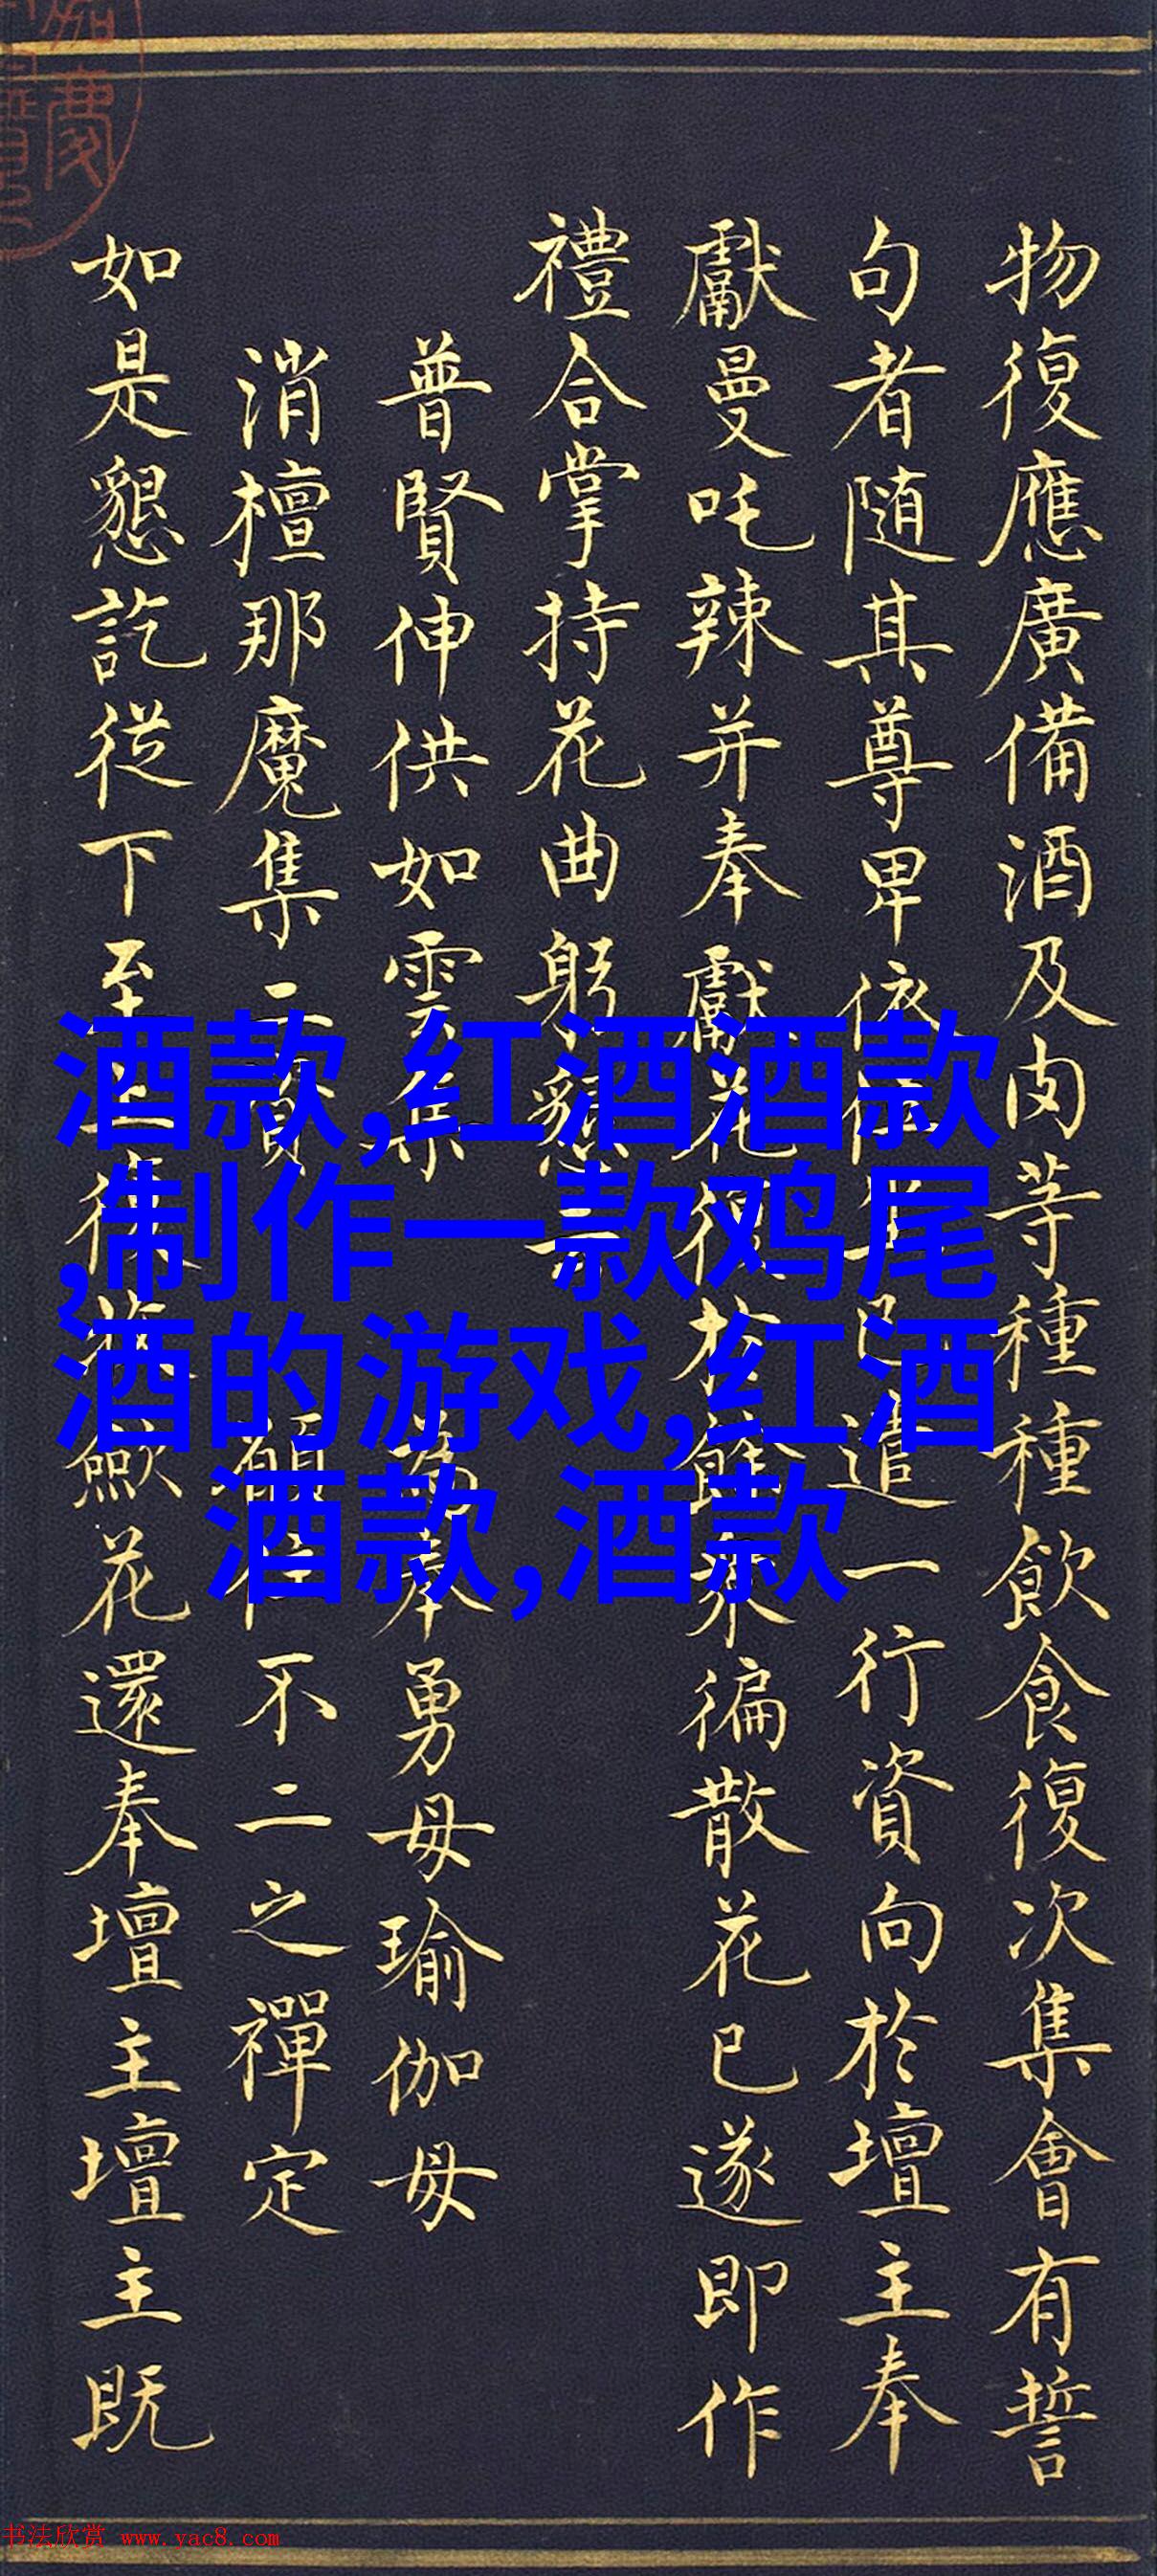 物復應廣備酒及肉等種種飲食復次集會有誓
句者随其尊卑依位已遣一行資向於壇主奉
獻曼吒辣并奉獻花復於餘衆徧散花已遂即作
禮合掌持花曲躬懇云
普賢伸供如雲集 為奉勇母瑜伽母
消檀那魔集二資 願住不二之禪定
如是懇訖從下至上復收歛花還奉壇主壇主既
酒款,红酒酒款
,制作一款鸡尾
酒的游戏,红酒
酒款,酒款
书法欣赏 www.yac8.com